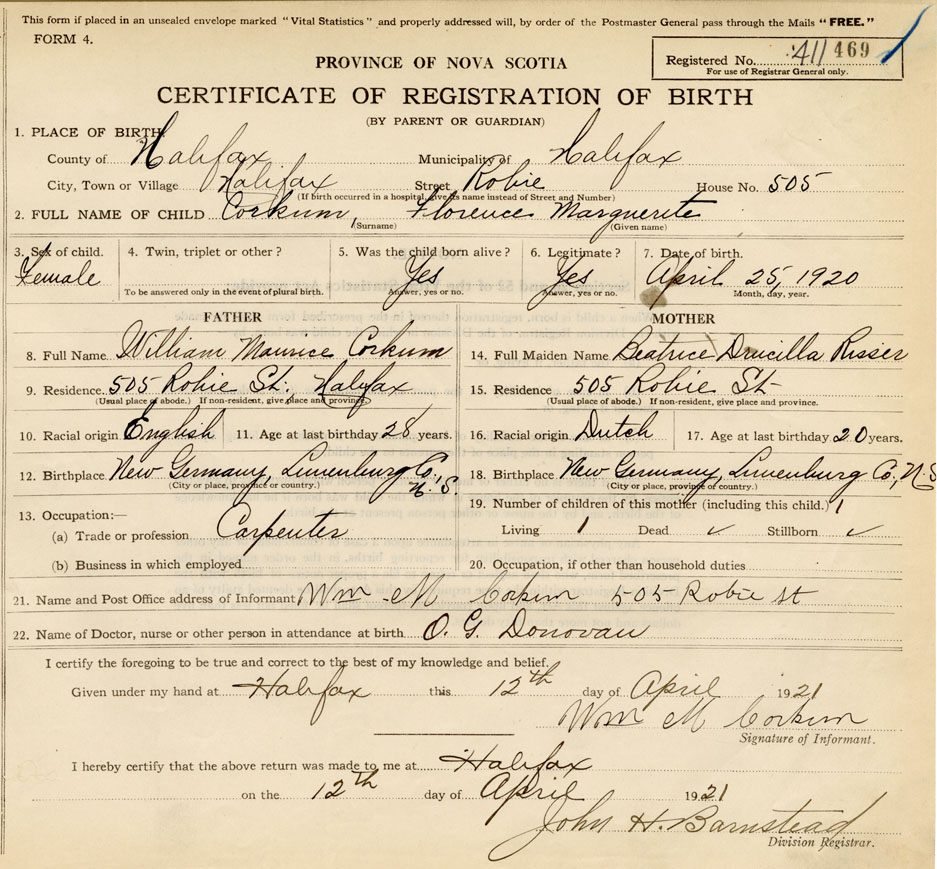 This form if placed in an unsealed envelope marked "Vital Statistics" and properly addressed will, by order of the Postmaster General pass through the Mails "FREE."
FORM 4.
Registered No. 411 469
For use of Registrar General only.
PROVINCE OF NOVA SCOTIA
CERTIFICATE OF REGISTRATION OF BIRTH
(BY PARENT OR GUARDIAN)
1. PLACE OF BIRTH
County of Halifax Municipality of Halifax
City, Town or Village Halifax Street Robie House No. 505
(If birth occurred in a hospital, give its name instead of Street and Number)
2. FULL NAME OF CHILD Corkum, Florence Marguerite
(Surname) (Given name)
3. Sex of child. 4. Twin, triplet or other? 5. Was the child born alive? 6. Legitimate? 7. Date of birth.
Female Yes Yes April 25, 1920
To be answered only in the event of plural birth. Answer, yes or no. Answer, yes or no. Month, day, year.
FATHER MOTHER
8. Full Name William Maurice Corkum 14. Full Maiden Name Beatrice Drucilla Risser
9. Residence 505 Robie St; Halifax 15. Residence 505 Robie St
(Usual place of abode.) If non-resident, give place and province. (Usual place of abode.) If non-resident, give place and province.
10. Racial origin English 11. Age at last birthday 28 years. 16. Racial origin Dutch 17. Age at last birthday 20 years.
12. Birthplace New Germany, Lunenburg Co, N.S. 18. Birthplace New Germany, Lunenburg Co, N.S
(City or place, province or country.) (City or place, province or country.)
13. Occupation:— 19. Number of children of this mother (including this child.) 1
(a) Trade or profession Carpenter Living 1 Dead ✓ Stillborn ✓
(b) Business in which employed 20. Occupation, if other than household duties
21. Name and Post Office address of Informant Wm M Corkum 505 Robie st
22. Name of Doctor, nurse or other person in attendance at birth O. G. Donovan
I certify the foregoing to be true and correct to the best of my knowledge and belief.
Given under my hand at Halifax this 12th day of April 1921
Wm M Corkum
Signature of Informant.
I hereby certify that the above return was made to me at Halifax
on the 12th day of April 1921
John H. Barnstead
Division Registrar.